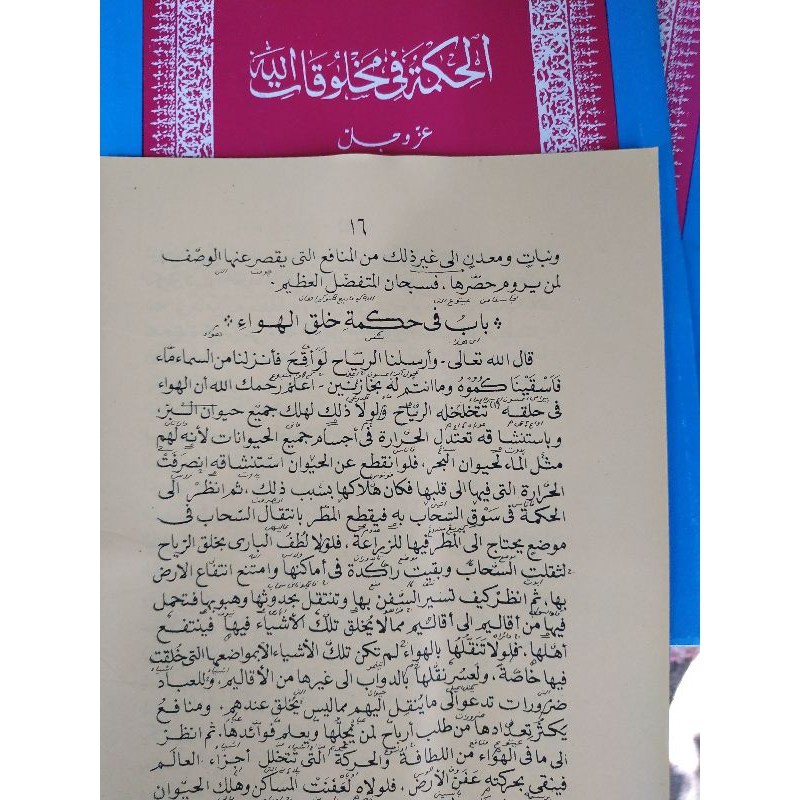 الحكمة في مخلوقات الله
عز وجل
١٦
ونبات ومعدن الى غير ذلك من المنافع التى يقصر عنها الوصف
لمن يروم حصرها، فسبحان المتفضل العظيم.
باب فى حكمة خلق الهواء
قال الله تعالى - وأرسلنا الرياح لواقح فأنزلنا من السماء ماء
فأسقيناكموه وما انتم له بخازنين - اعلم رحمك الله أن الهواء
فى خلقه (١) تتخلخله الرياح ولولا ذلك لهلك جميع حيوان البر،
وباستنشاقه تعتدل الحرارة فى اجسام جميع الحيوانات لأنه لهم
مثل الماء لحيوان البحر، فلو انقطع عن الحيوان استنشاقه انصرفت
الحرارة التى فيها الى قلبها فكان هلاكها بسبب ذلك، ثم انظر الى
الحكمة فى سوق السحاب به فيقطع المطر بانتقال السحاب فى
موضع يحتاج الى المطر فيها للزراعة، فلولا لطف البارى بخلق الرياح
لثقلت السحاب وبقيت راكدة فى أماكنها وامتنع انتفاع الارض
بها، ثم انظر كيف تسير السفن بها وتنتقل بحدوثها وهبوبها فتحمل
فيها من أقاليم الى أقاليم مما لا يخلق تلك الأشياء فيها فينتفع
أهلها. فلولا تنقلها بالهواء لم تكن تلك الأشياء الا بمواضعها التى خلقت
فيها خاصة، ولعسر نقلها بالدواب الى غيرها من الأقاليم، وللعباد
ضرورات تدعو الى ما ينقل اليهم مما ليس يخلق عندهم. ومنافع
يكثر تعدادها من طلب أرباح لمن يجلبها ويعلم فوائدها. ثم انظر
الى ما فى الهواء من اللطافة والحركة التى تتخلل أجزاء العالم
فينقى بحركته عفن الارض. فلولاه لعفنت المساكن وهلك الحيوان